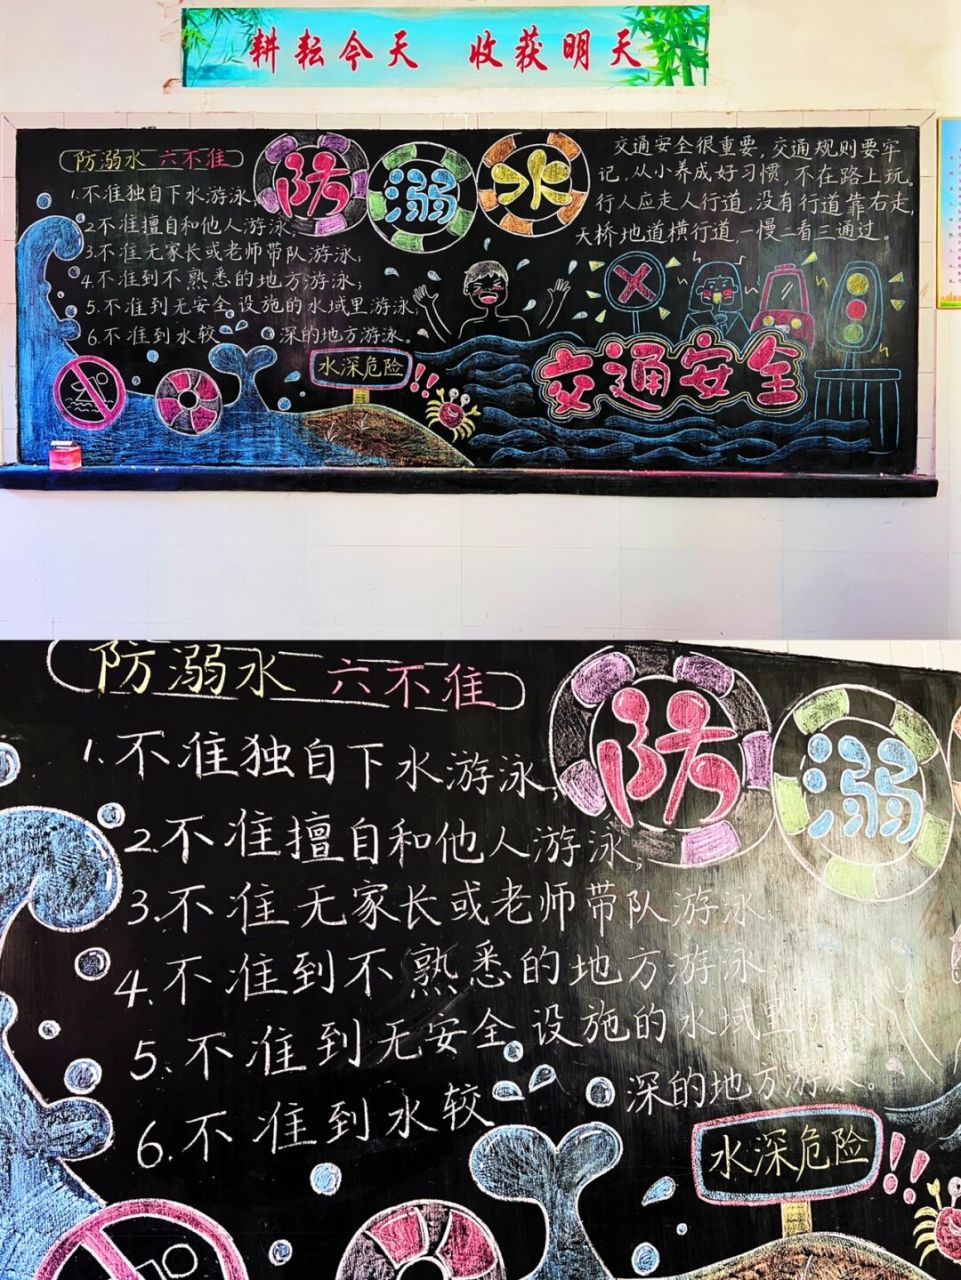 耕耘今天 收获明天
防溺水 六不准
1.不准独自下水游泳;
2.不准擅自和他人游泳;
3.不准无家长或老师带队游泳;
4.不准到不熟悉的地方游泳;
5.不准到无安全设施的水域里游泳;
6.不准到水较深的地方游泳。
防溺水
交通安全很重要,交通规则要牢
记,从小养成好习惯,不在路上玩。
行人应走人行道,没有行道靠右走,
天桥地道横行道,一慢二看三通过。
水深危险
!!
交通安全
防溺水 六不准
1.不准独自下水游泳;
2.不准擅自和他人游泳;
3.不准无家长或老师带队游泳
4.不准到不熟悉的地方游泳;
5.不准到无安全设施的水域里
6.不准到水较深的地方游泳。
防溺
水深危险
!!